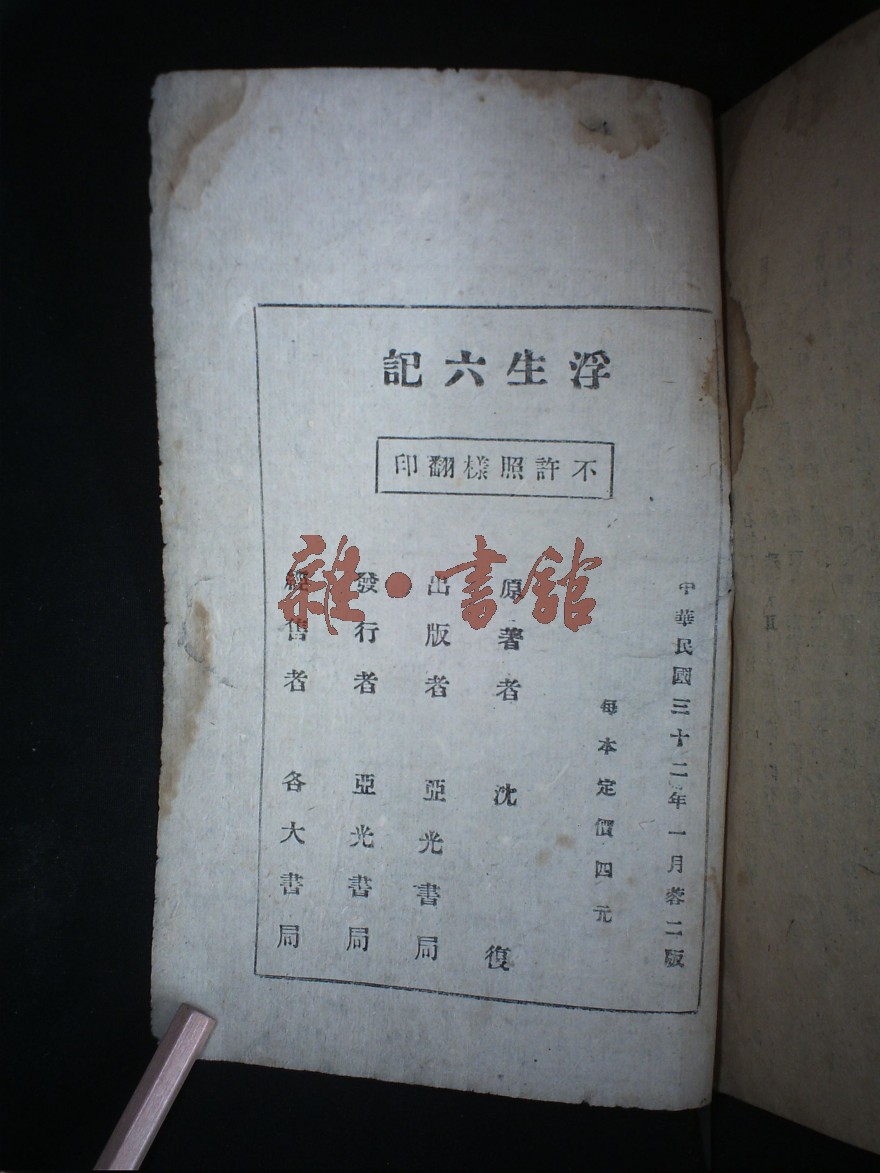 浮生六記
不許照樣翻印
中華民國三十二年一月蓉二版
每本定價四元
原著者 沈復
出版者 亞光書局
發行者 亞光書局
經售者 各大書局
雜·書館